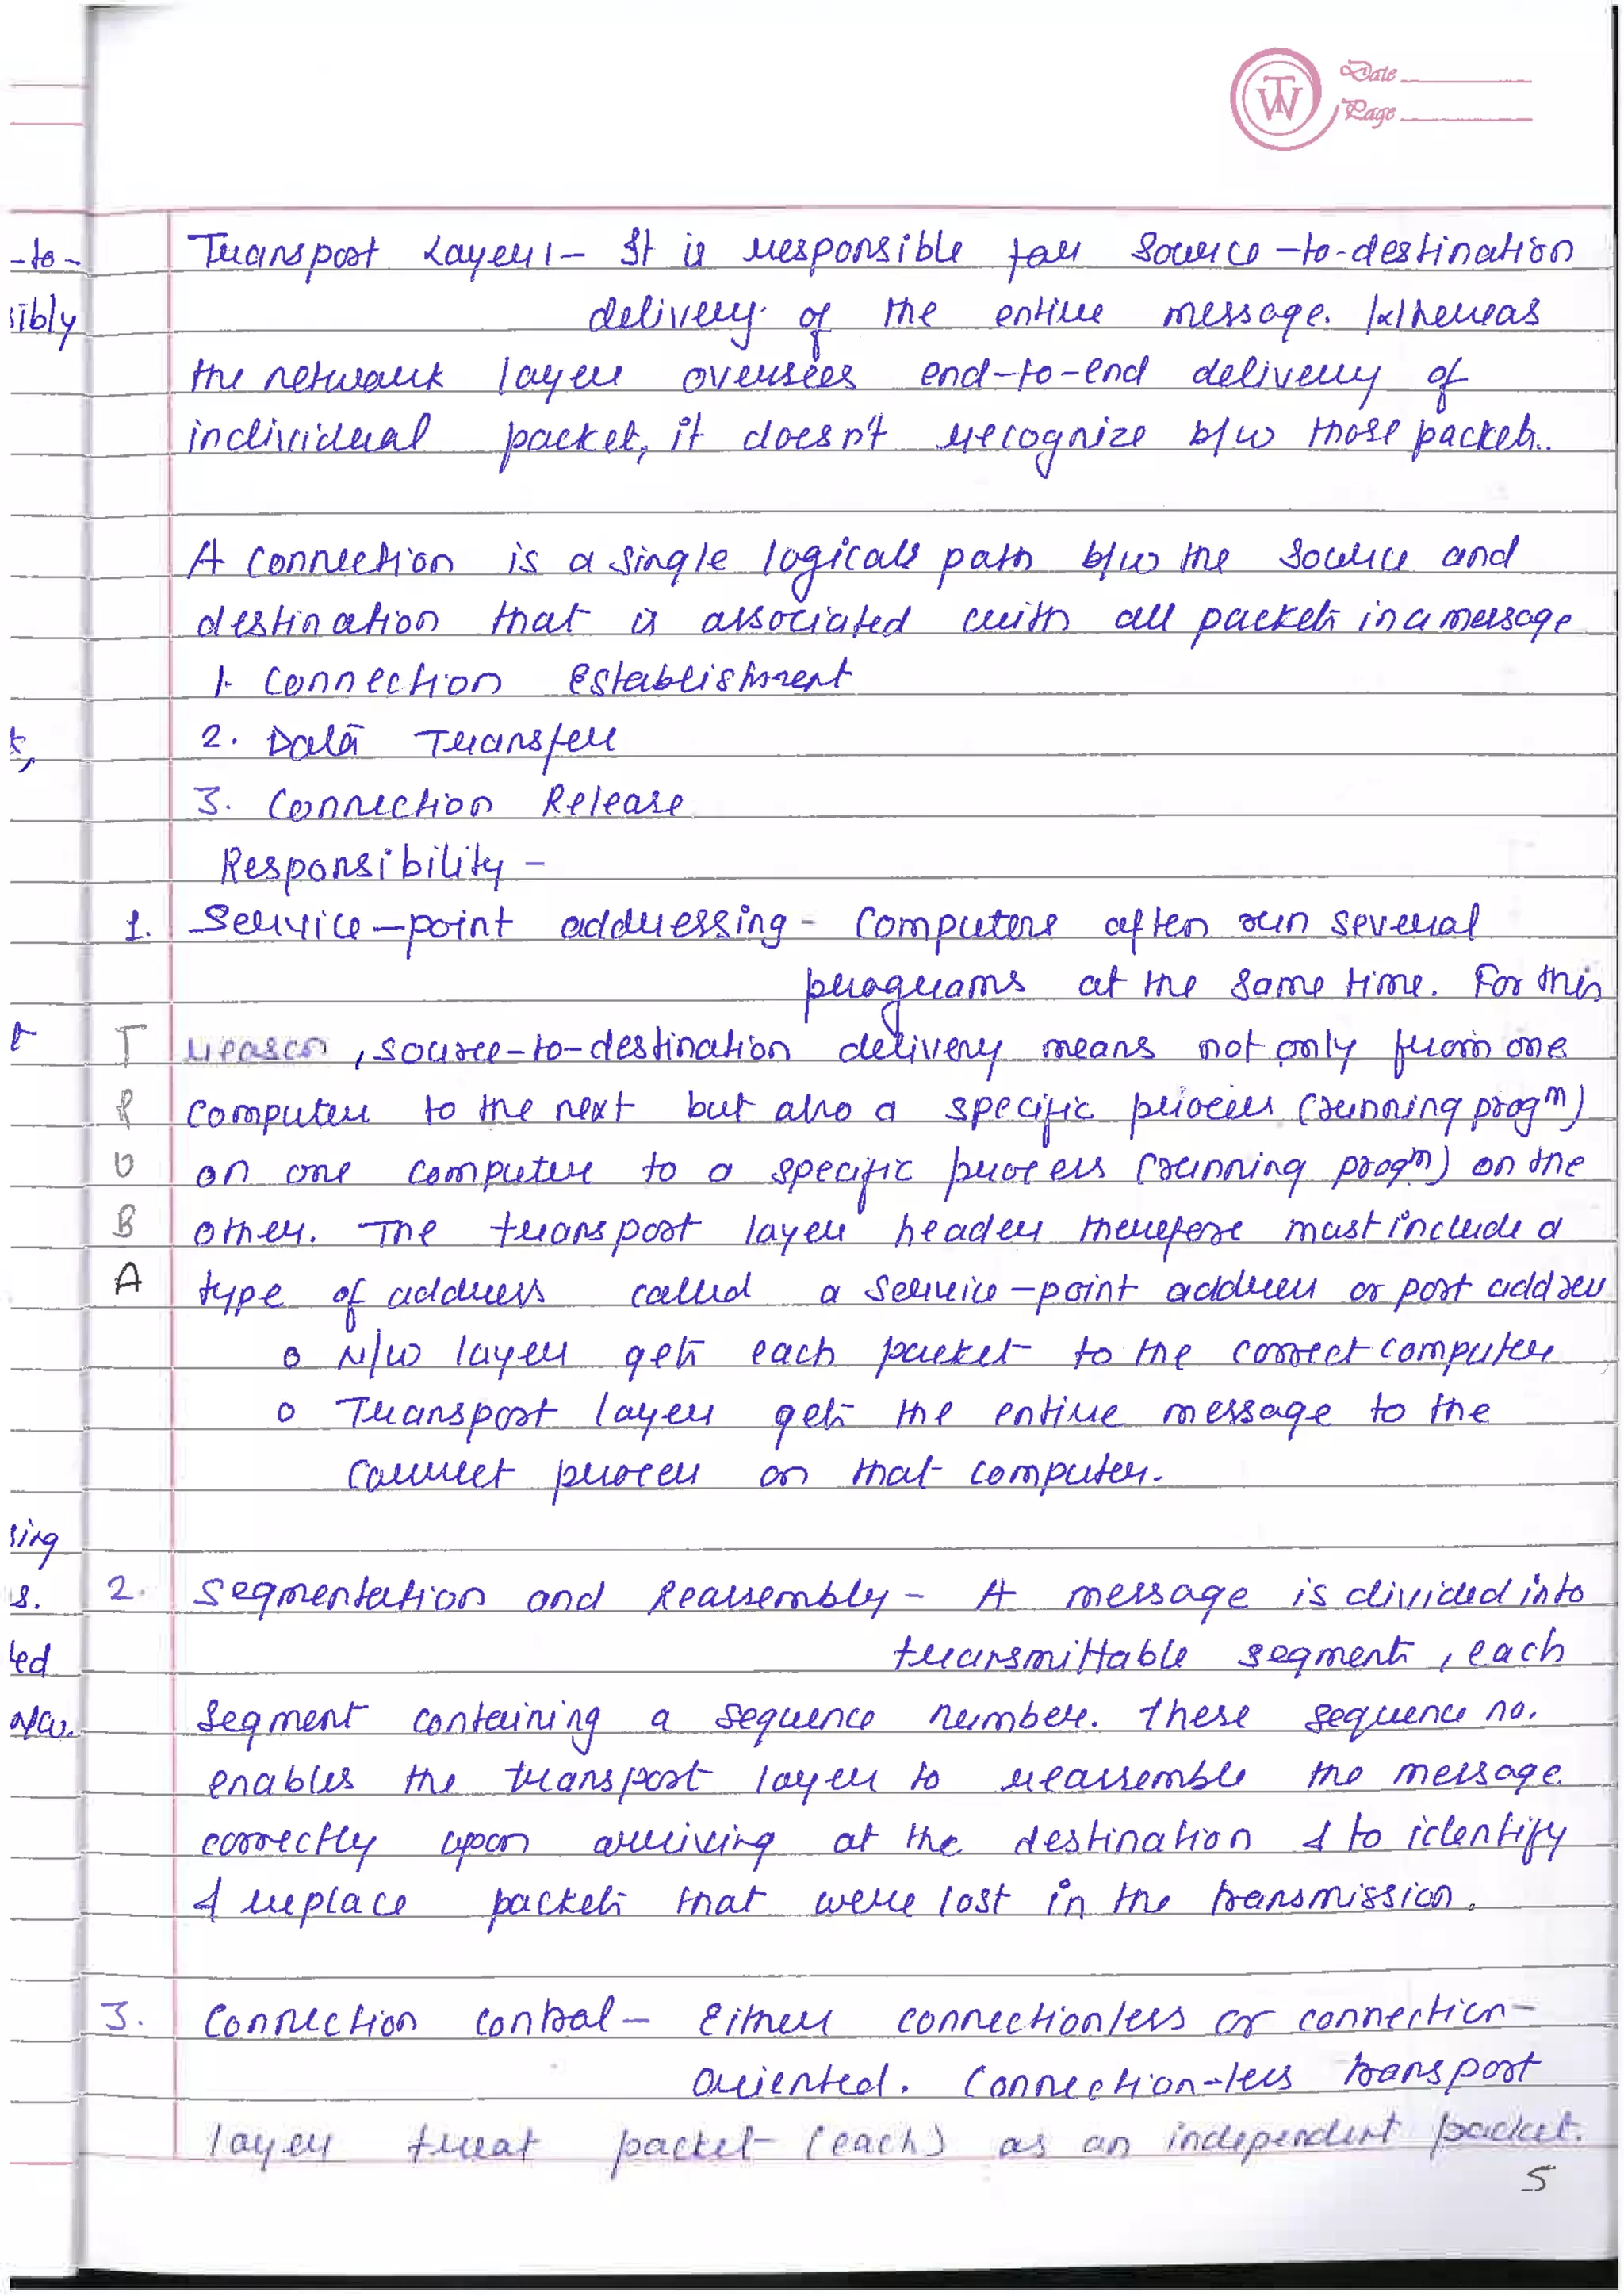 TW Date
Page
Transport Layer :- It is responsible for source-to-destination
delivery of the entire message. Whereas
the network layer oversees end-to-end delivery of
individual packet, it doesn't recognize b/w those packets.
A connection is a single logical path b/w the source and
destination that is associated with all packets in a message
1. Connection Establishment
2. Data Transfer
3. Connection Release
Responsibility -
1. Service-point addressing - Computers often run several
programs at the same time. For this
T reason, source-to-destination delivery means not only from one
R computer to the next but also a specific process (running progm)
U on one computer to a specific process (running progm) on the
B other. The transport layer header therefore must include a
A type of address called a service-point address or port address
o N/W layer gets each packet to the correct computer
o Transport layer gets the entire message to the
correct process on that computer.
2. Segmentation and Reassembly - A message is divided into
transmittable segments, each
segment containing a sequence number. These sequence no.
enables the transport layer to reassemble the message
correctly upon arriving at the destination & to identify
& replace packets that were lost in the transmission.
3. Connection control - Either connectionless or connection-
oriented. Connection-less transport
layer treat packet (each) as an independent packet.
5
-to-
sibly
t,
t
sing
s.
ted
n/w.